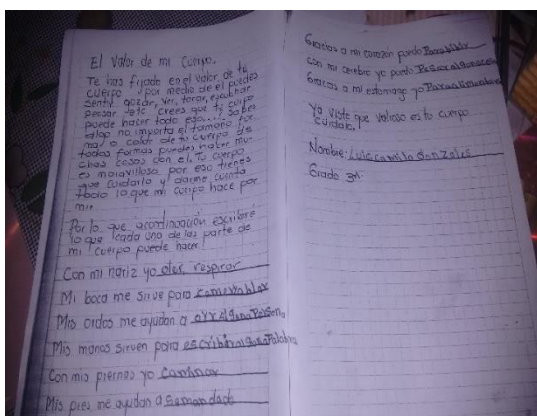 El Valor de mi Cuerpo.
Te has fijado en el valor de tu
cuerpo por medio de el puedes
sentir gozar, ver, tocar, escuchar
pensar etc crees que tu cuerpo
puede hacer todo eso...! Sabes
algo no importa el tamaño for
ma o color de tu cuerpo de
todas formas puedes hacer mu
chas cosas con el. Tu cuerpo
es maravilloso por eso tienes
que cuidarlo y darme cuenta
todo lo que mi cuerpo hace por
mi
Por lo que acontinuación escribiré
lo que cada una de las parte de
mi cuerpo puede hacer!
Con mi nariz yo oler, respirar
Mi boca me sirve para
Mis oidos me ayudan a
Mis manos sirven para escribir
Con mis piernas yo Caminar
Mis pies me ayudan a
Gracias a mi corazón puedo
Con mi cerebro yo puedo
Gracias a mi estomago yo
Ya viste que valioso es tu cuerpo
Cuidalo,
Nombre: Luis camilo Gonzales
Grado 3A